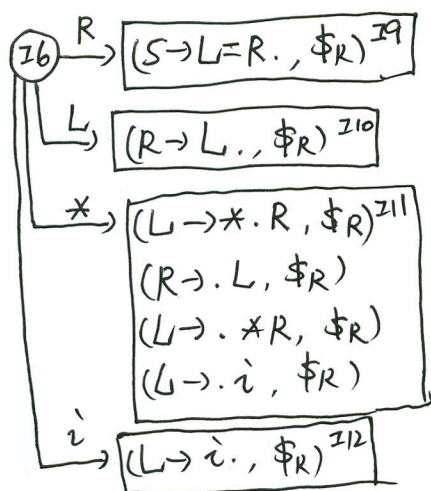 I6
R
(S→L=R., $R) I9
L
(R→L., $R) I10
*
(L→*.R, $R) I11
(R→.L, $R)
(L→.*R, $R)
(L→.i, $R)
i
(L→i., $R) I12